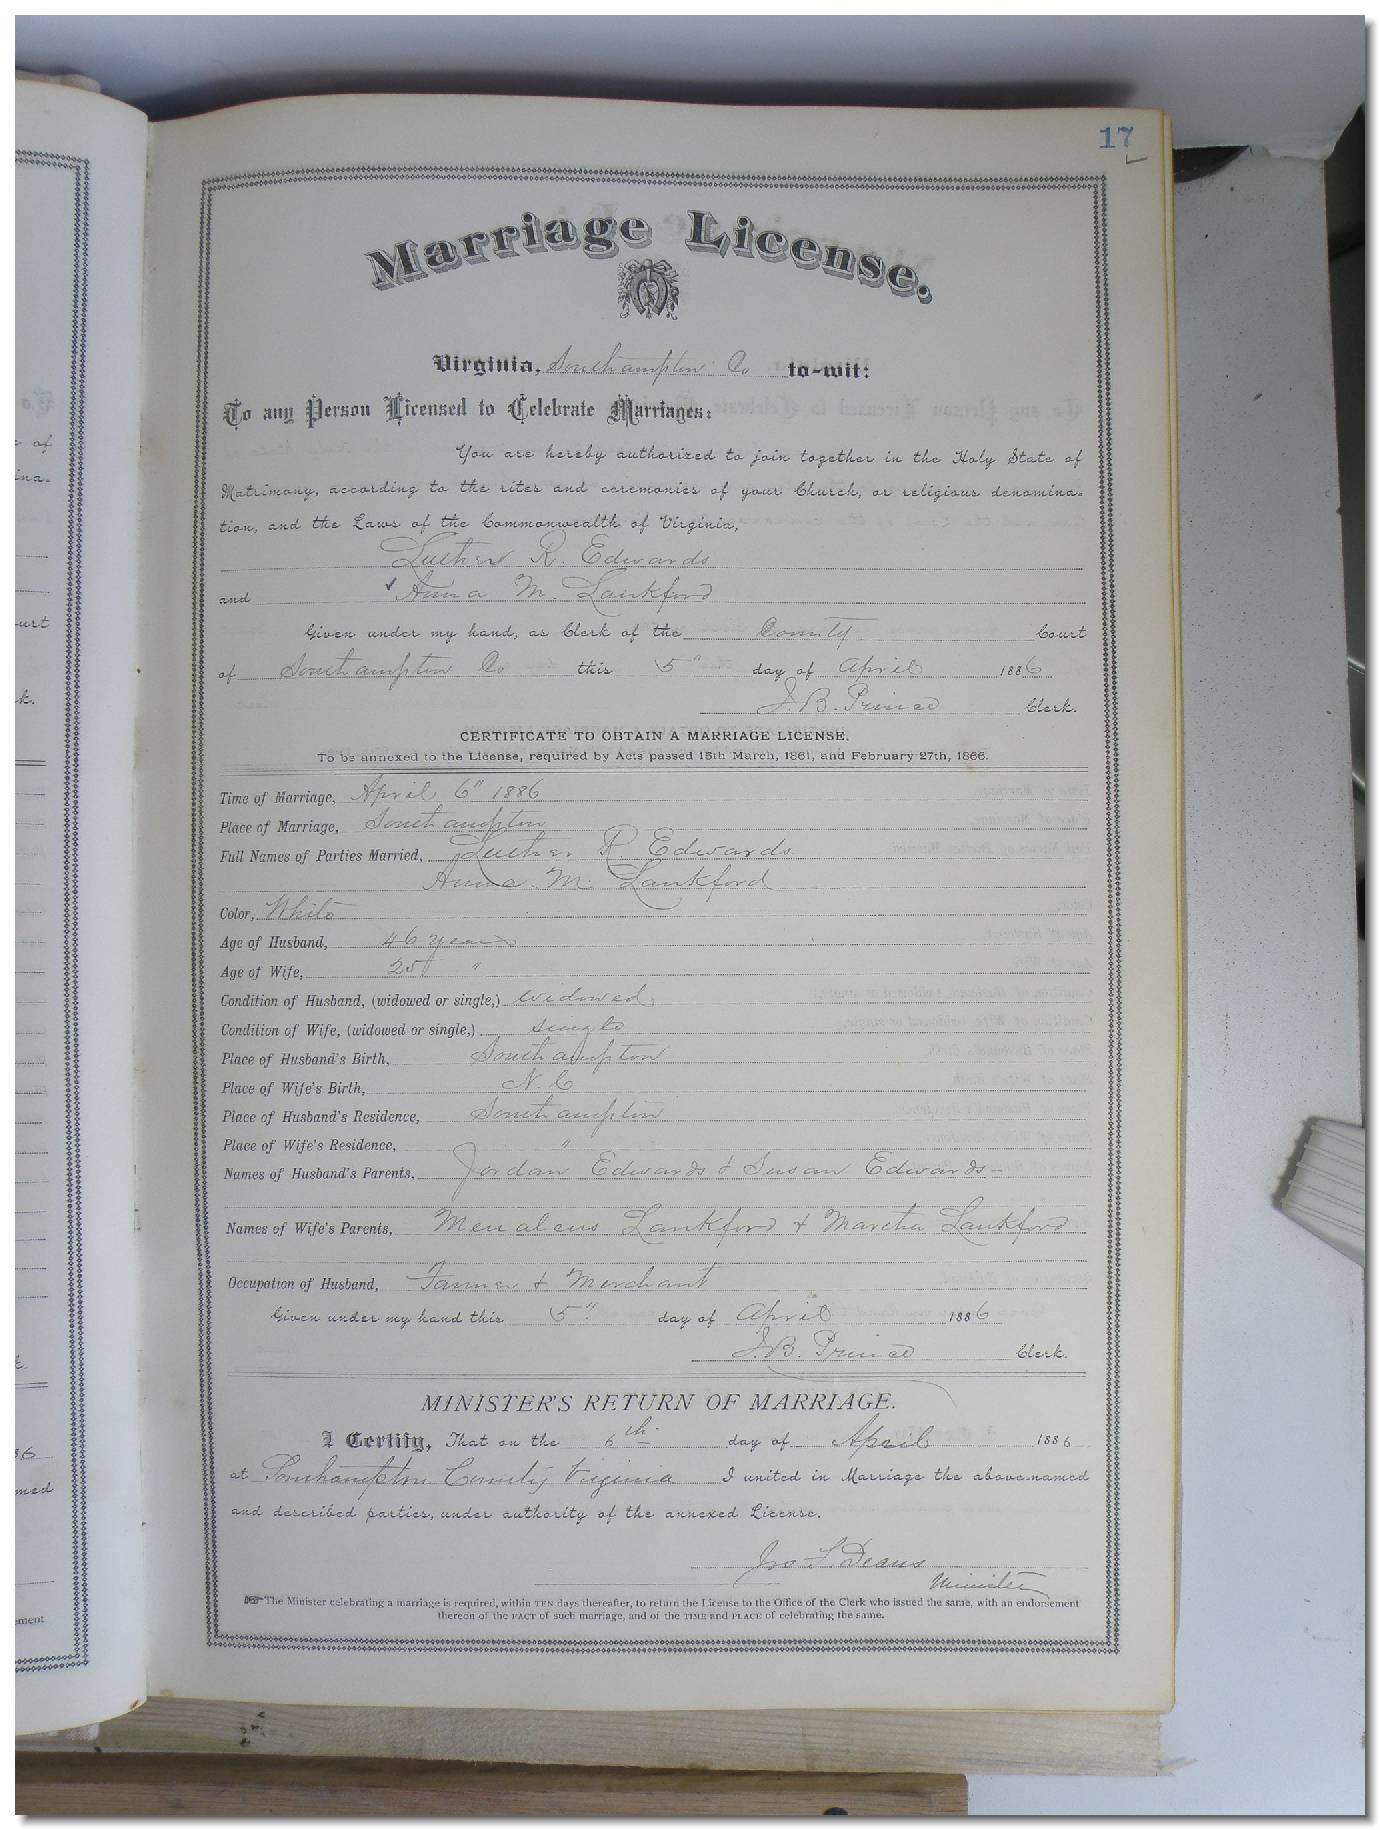 17
Marriage License.
Virginia, Southampton Co to-wit:
To any Person Licensed to Celebrate Marriages:
You are hereby authorized to join together in the Holy State of
Matrimony, according to the rites and ceremonies of your Church, or religious denomina-
tion, and the Laws of the Commonwealth of Virginia,
Luther R. Edwards
and Anna M. Lankford
Given under my hand, as Clerk of the County Court
of Southampton Co this 5" day of April 1886
J. B. Prince Clerk.
CERTIFICATE TO OBTAIN A MARRIAGE LICENSE.
To be annexed to the License, required by Acts passed 15th March, 1861, and February 27th, 1866.
Time of Marriage, April 6" 1886
Place of Marriage, Southampton
Full Names of Parties Married, Luther R. Edwards
Anna M. Lankford
Color, White
Age of Husband, 46 years
Age of Wife, 25 "
Condition of Husband, (widowed or single,) widowed
Condition of Wife, (widowed or single,) single
Place of Husband's Birth, Southampton
Place of Wife's Birth, N. C
Place of Husband's Residence, Southampton
Place of Wife's Residence, "
Names of Husband's Parents, Jordan Edwards & Susan Edwards
Names of Wife's Parents, Menalcus Lankford & Martha Lankford
Occupation of Husband, Farmer & Merchant
Given under my hand this 5" day of April 1886
J. B. Prince Clerk.
MINISTER'S RETURN OF MARRIAGE.
I Certify, That on the 6th day of April 1886
at Southampton County Virginia I united in Marriage the above-named
and described parties, under authority of the annexed License.
Jos F. Deans
Minister
The Minister celebrating a marriage is required, within TEN days thereafter, to return the License to the Office of the Clerk who issued the same, with an endorsement
thereon of the FACT of such marriage, and of the TIME and PLACE of celebrating the same.